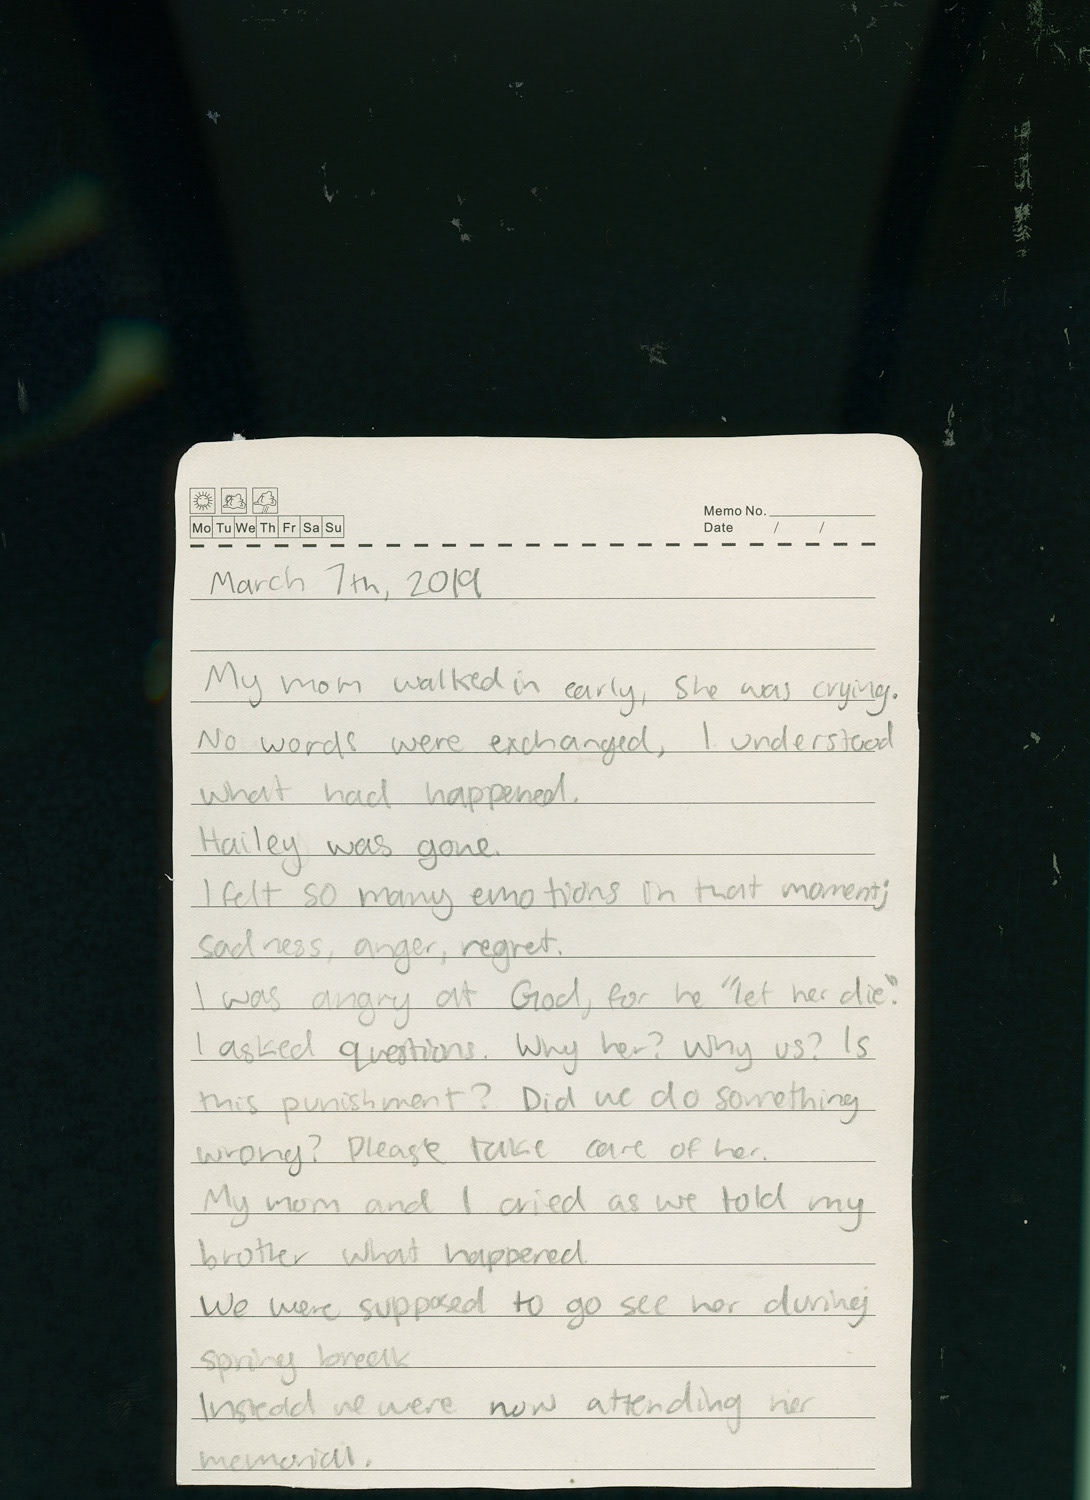 Mo Tu We Th Fr Sa Su
Memo No.
Date / /
March 7th, 2019
My mom walked in early, She was crying.
No words were exchanged, I understood
what had happened.
Hailey was gone.
I felt so many emotions in that moment;
sadness, anger, regret.
I was angry at God, for he "let her die".
I asked questions. Why her? Why us? Is
this punishment? Did we do something
wrong? Please take care of her.
My mom and I cried as we told my
brother what happened
We were supposed to go see her during
spring break
Instead we were now attending her
memorial.